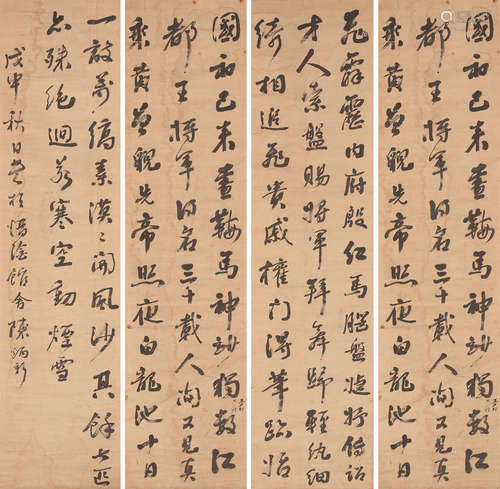 國初已來畫鞍馬神妙獨數江
都王將軍得名三十載人間又見真
乘黃曾貌先帝照夜白龍池十日
飛霹靂內府殷紅馬腦盤婕妤傳詔
才人索盤賜將軍拜舞歸輕紈細
綺相追飛貴戚權門得筆跡始
國初已來畫鞍馬神妙獨數江
都王將軍得名三十載人間又見真
乘黃曾貌先帝照夜白龍池十日
一敵萬縞素漠〻開風沙其餘七匹
亦殊絕迥若寒空動煙雪
戊申秋日書於惜陰館